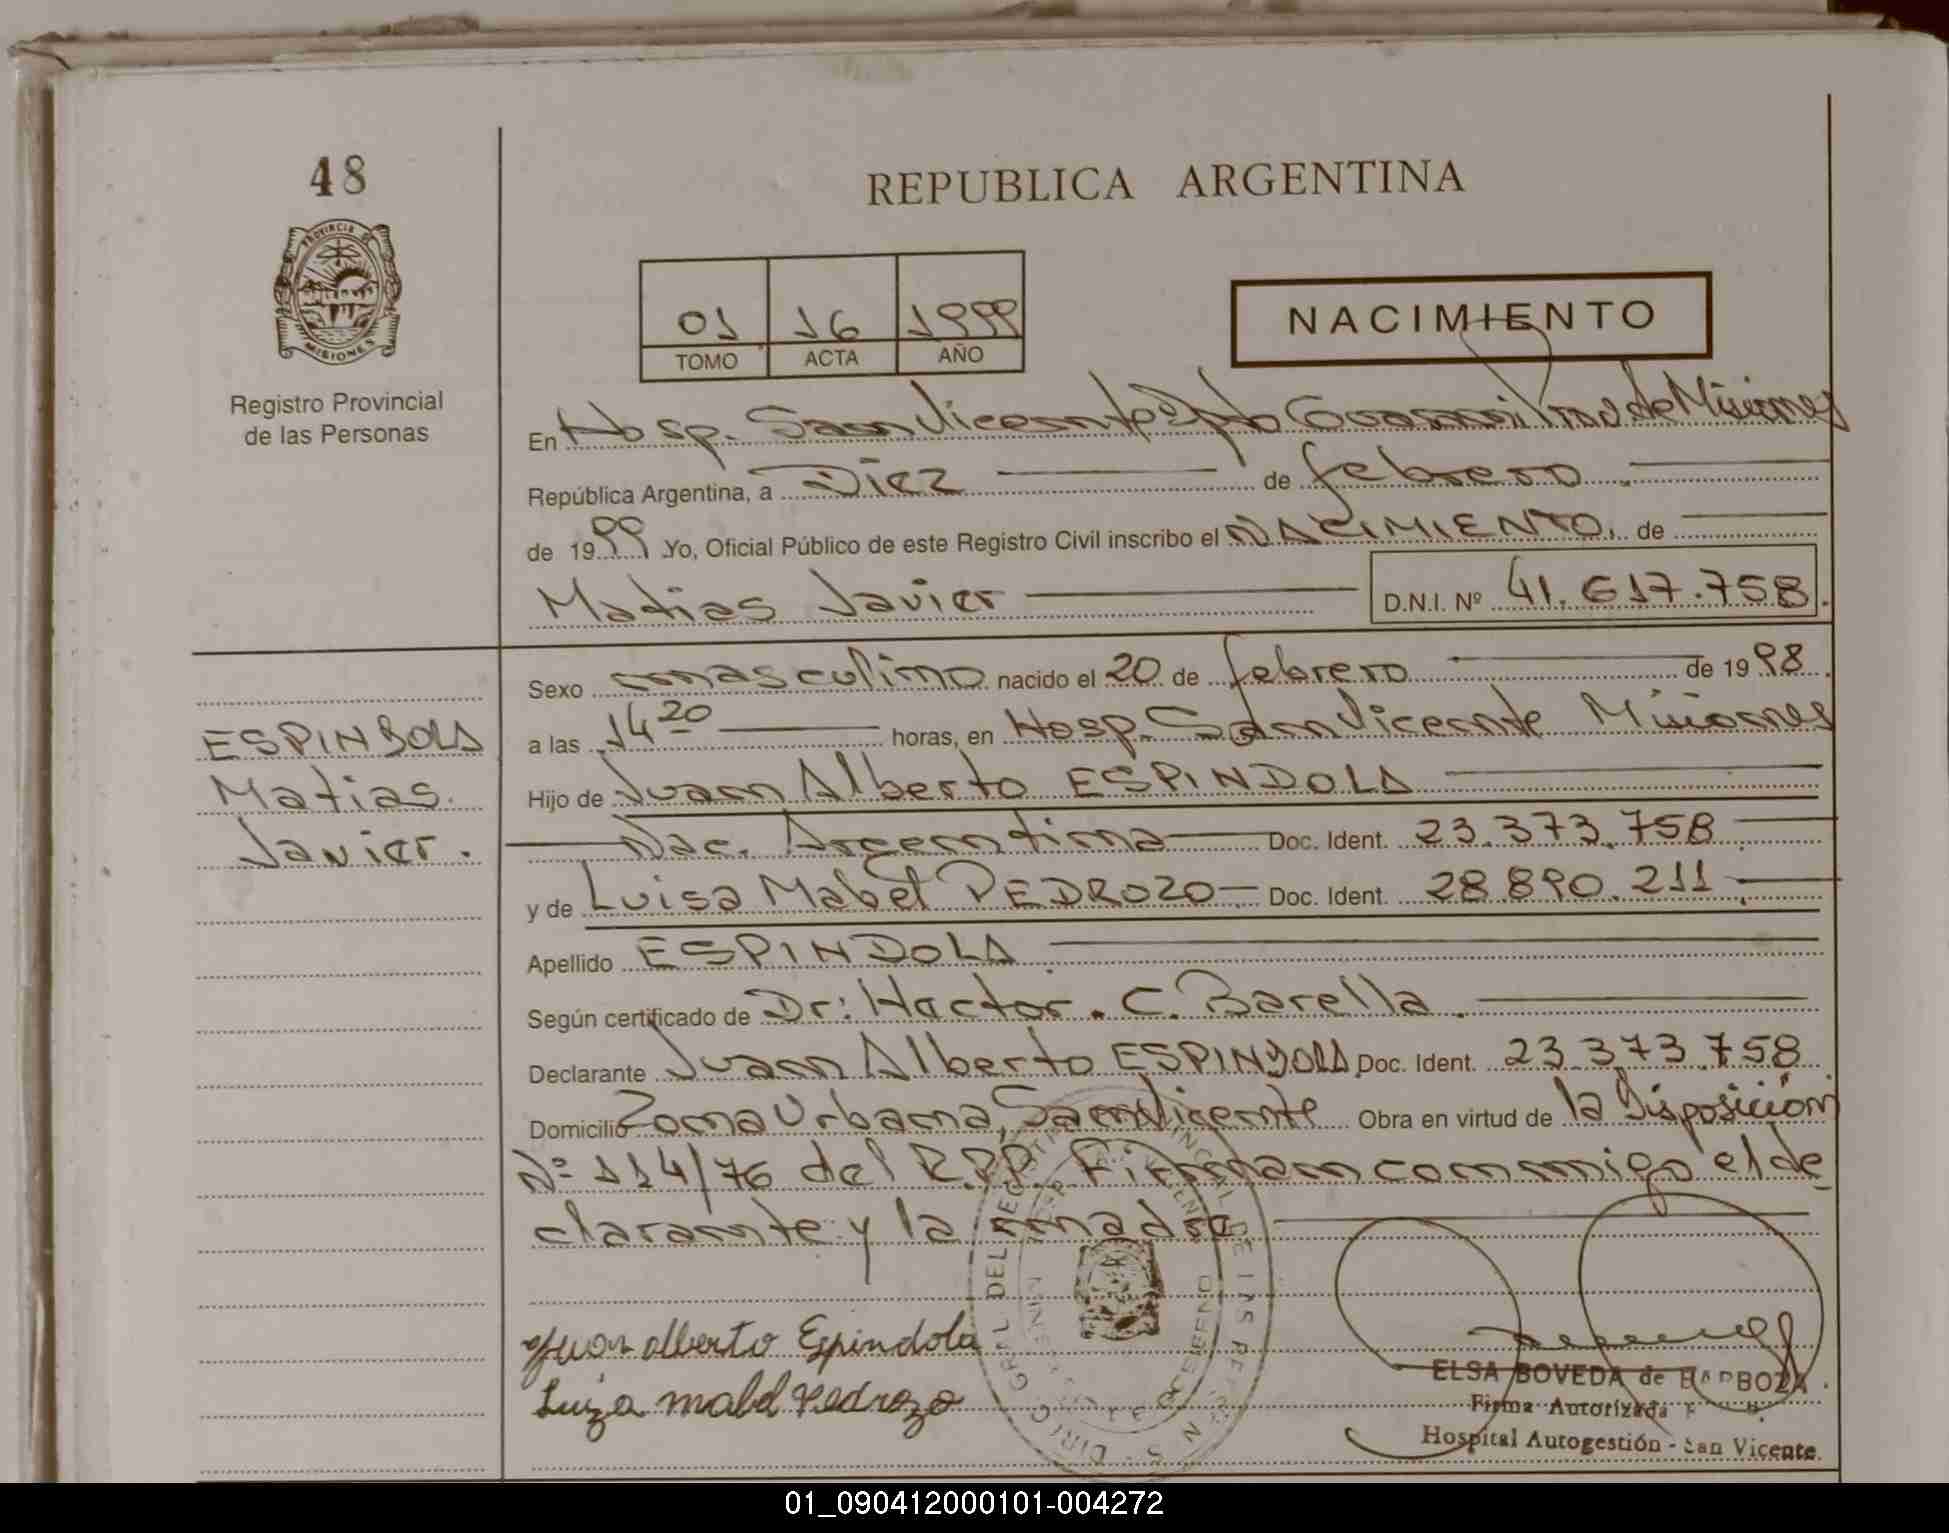 48
REPUBLICA ARGENTINA
PROVINCIA DE
MISIONES
Registro Provincial
de las Personas
01 16 1999
TOMO ACTA AÑO
NACIMIENTO
En Hosp. San Vicente Dpto Guaraní Prov de Misiones
República Argentina, a Diez de febrero
de 1999 Yo, Oficial Público de este Registro Civil inscribo el NACIMIENTO. de
Matias Javier D.N.I. Nº 41.617.758
ESPINDOLA
Matias.
Javier.
Sexo masculino nacido el 20 de febrero de 1998
a las 14 20 horas, en Hosp. San Vicente Misiones
Hijo de Juan Alberto ESPINDOLA
Nac. Argentina Doc. Ident. 23.373.758
y de Luisa Mabel PEDROZO Doc. Ident. 28.890.211
Apellido ESPINDOLA
Según certificado de Dr: Hactor. C. Barella.
Declarante Juan Alberto ESPINDOLA Doc. Ident. 23.373.758
Domicilio Zona Urbana, San Vicente Obra en virtud de la Disposición
Nº 114/76 del R.P.P. Firman conmigo el de
clarante y la madre
Juan alberto Espindola
Luiza mabel Pedrozo
ELSA BOVEDA de BARBOZA
Firma Autorizada
Hospital Autogestión - San Vicente
01_090412000101-004272